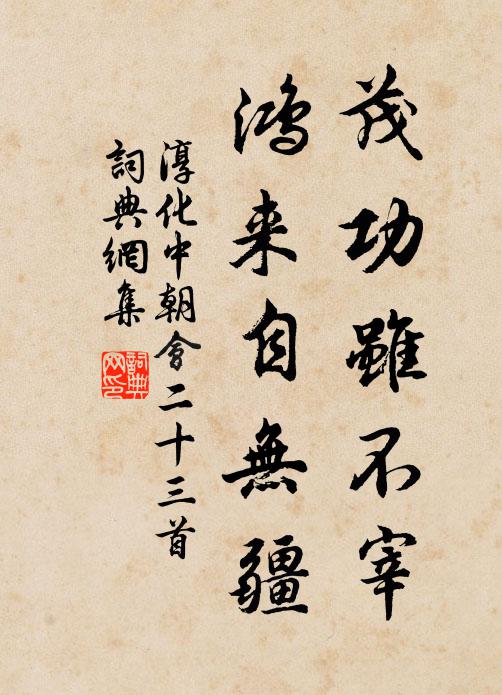 茂功雖不宰
鴻来自無疆
淳化中朝會二十三首
詞典網集
詞典網印